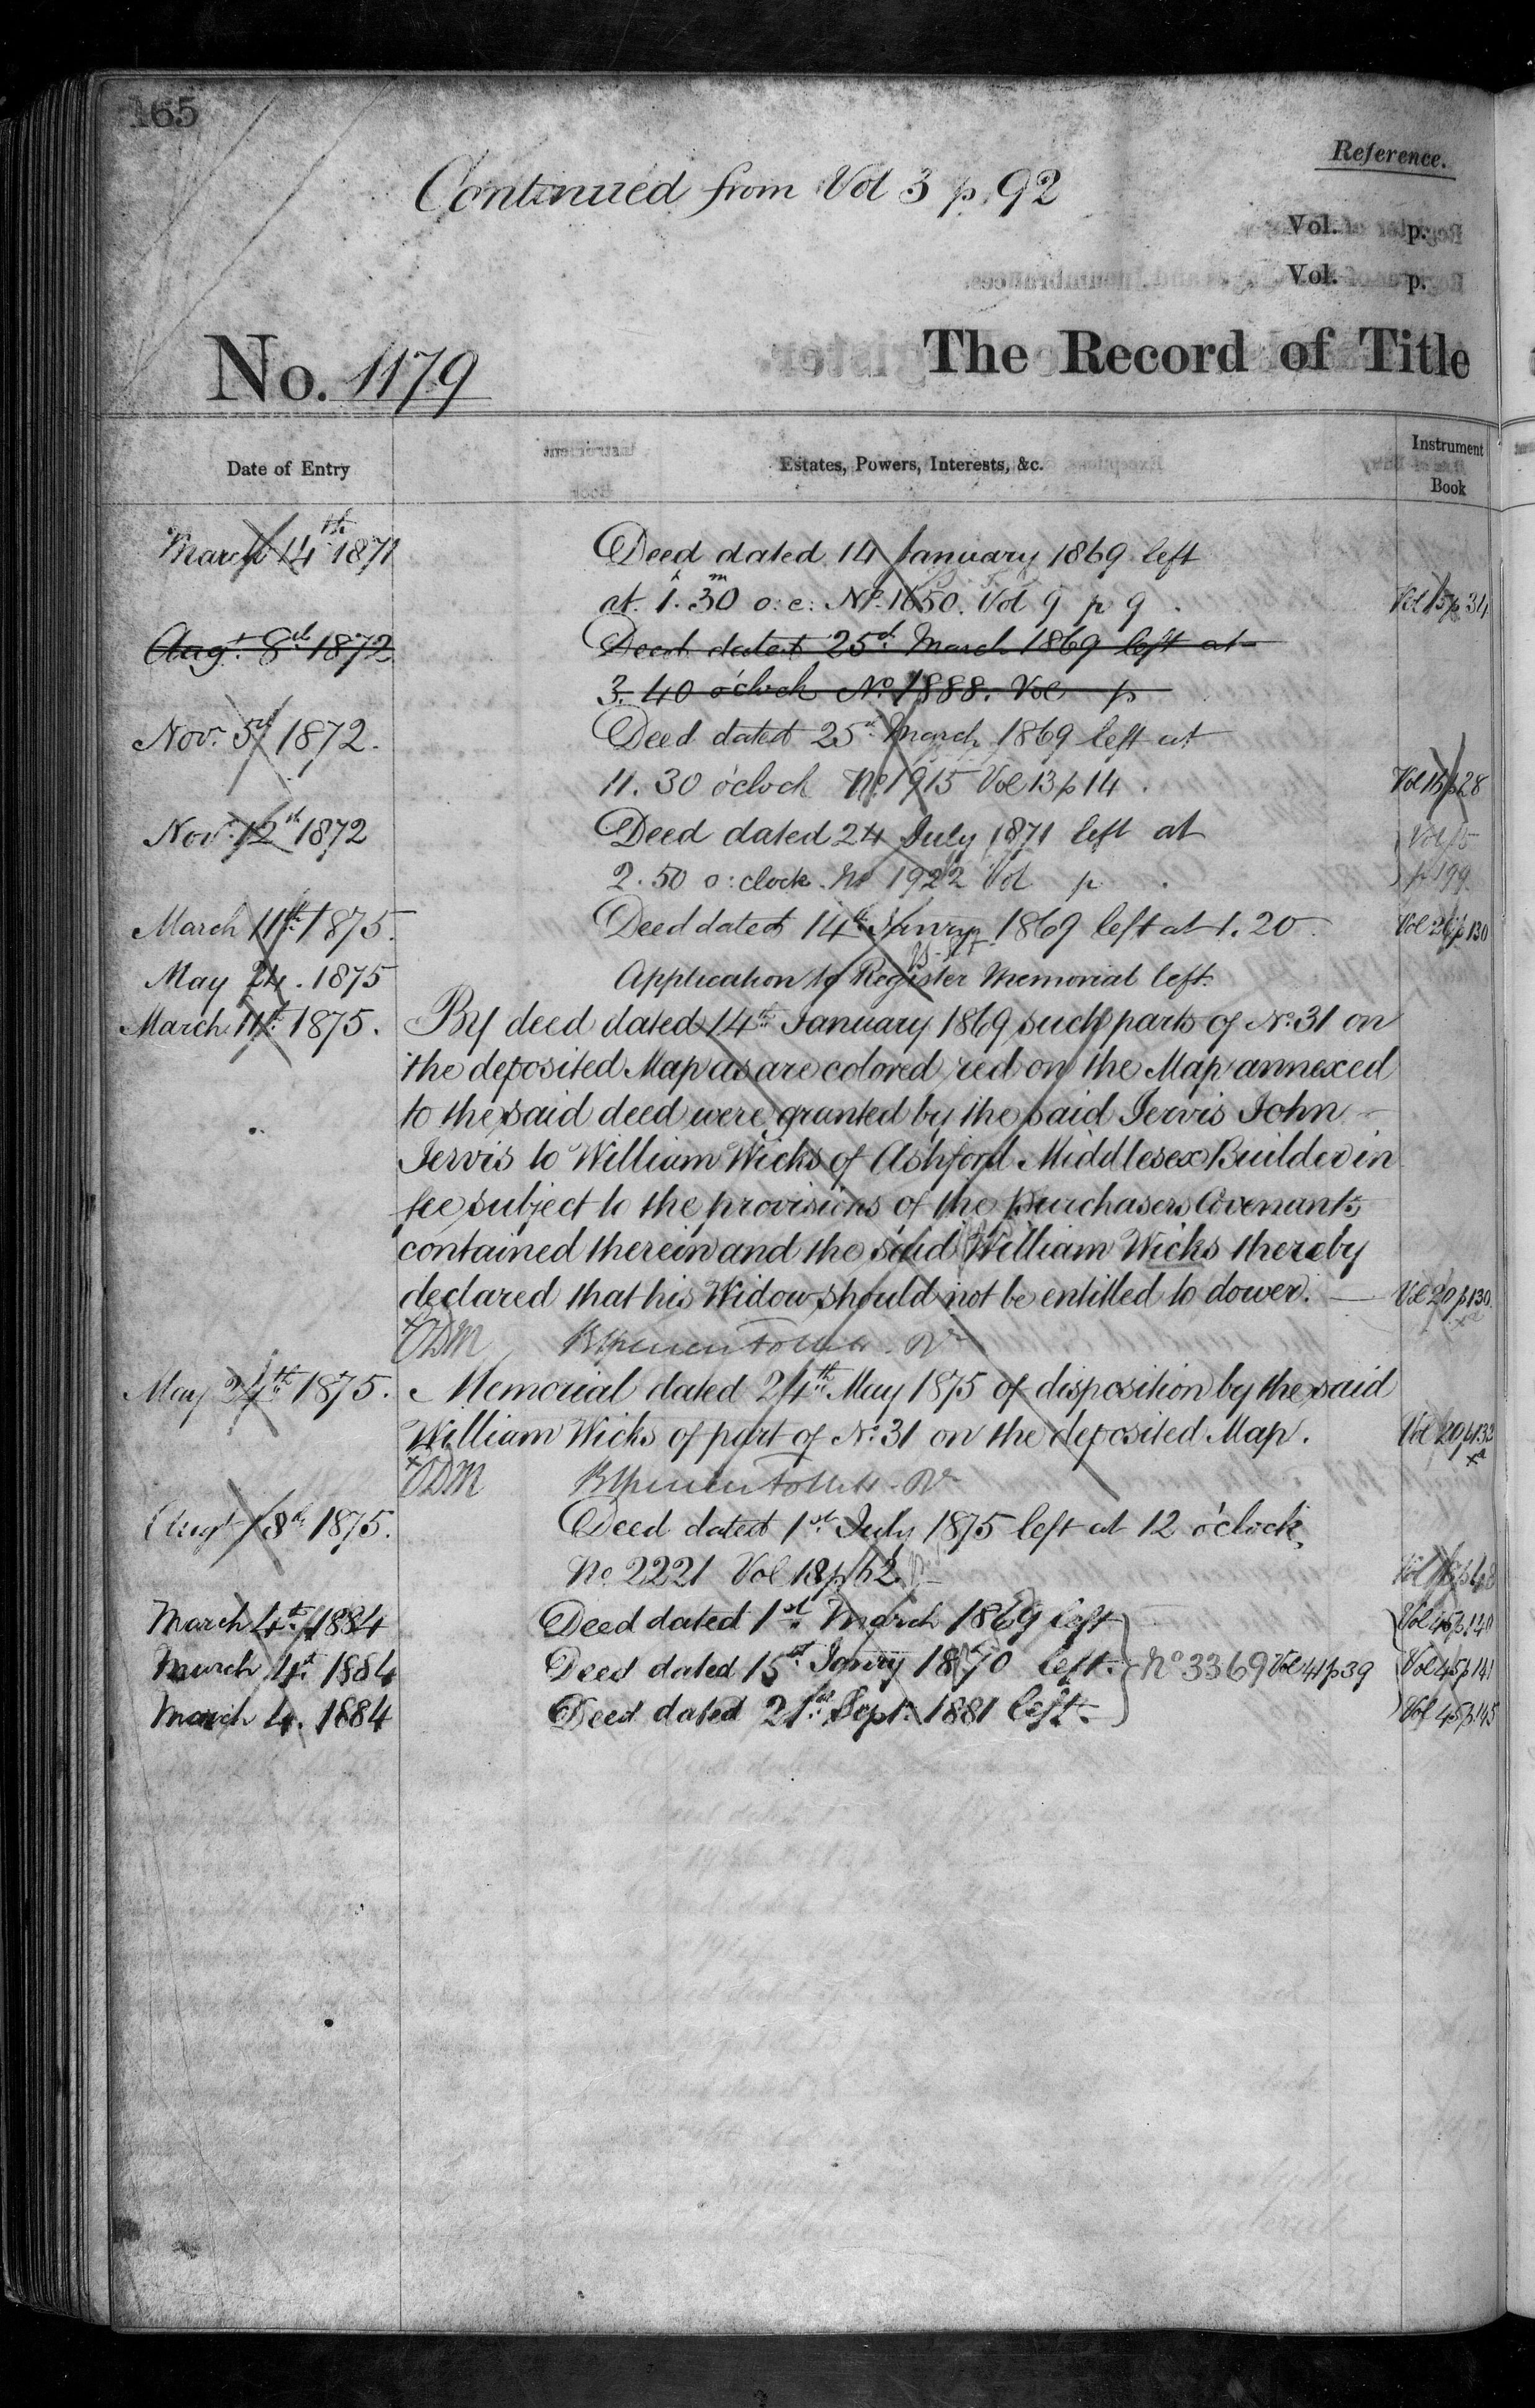 165
Reference.
Continued from Vol 3 p. 92
Vol. p.
Vol. p.
No. 1179
The Record of Title
Date of Entry
Estates, Powers, Interests, &c.
Instrument Book
March 14th 1871 Deed dated 14 January 1869 left
at 1.30 o:c: No. 1650. Vol 9 p 9 Vol 15 p 34
Augt. 8th 1872 Deed dated 25th March 1869 left at
3.40 o'clock No. 1888. Vol p
Nov. 5th 1872. Deed dated 25th March 1869 left at
11.30 o'clock No. 1915 Vol 13 p 14. Vol 15 p 28
Nov. 12th 1872 Deed dated 24 July 1871 left at Vol 15
2.50 o:clock No 1922 Vol p. p 199
March 11th 1875. Deed dated 14th Janry 1869 left at 1.20 Vol 20 p 130
May 24. 1875 Application to Register Memorial left.
March 11th 1875. By deed dated 14th January 1869 such parts of No. 31 on
the deposited Map as are colored red on the Map annexed
to the said deed were granted by the said Jervis John
Jervis to William Wicks of Ashford Middlesex Builder in
fee subject to the provisions of the purchasers Covenants
contained therein and the said William Wicks thereby
declared that his Widow should not be entitled to dower. Vol 20 p 130
ODM
May 24th 1875. Memorial dated 24th May 1875 of disposition by the said
William Wicks of part of No. 31 on the deposited Map. Vol 20 p 132
ODM
Augt 18th 1875. Deed dated 1st July 1875 left at 12 o'clock
No. 2221 Vol 18 p 62
March 4th 1884 Deed dated 1st March 1869 left Vol 45 p 140
March 4th 1884 Deed dated 15th Janry 1870 left. No 3369 Vol 41 p 39 Vol 45 p 141
March 4. 1884 Deed dated 21st Sept. 1881 left. Vol 45 p 145